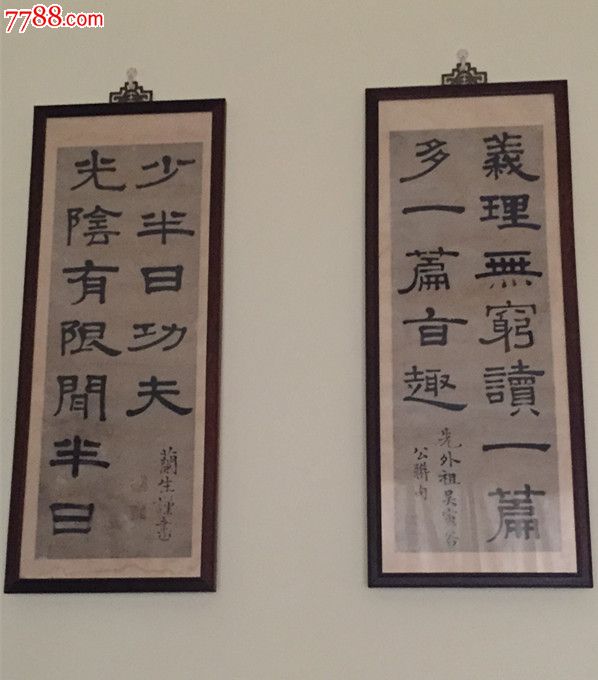 7788.com
義理無窮讀一篇
多一篇旨趣
先外祖吳寅谷
公聯句
光陰有限閒半日
少半日功夫
蘭生謹書